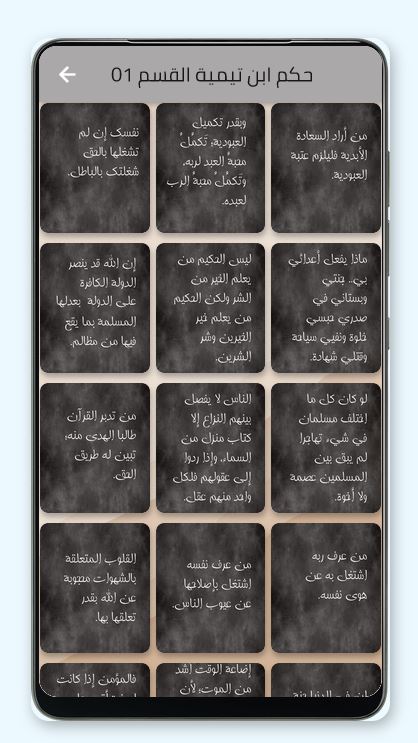 حكم ابن تيمية القسم 01
من أراد السعادة
الأبدية فليلزم عتبة
العبودية.
وبقدر تكميل
العبودية؛ تَكمُلُ
محبةُ العبد لربه،
وتَكمُلُ محبةُ الرب
لعبده.
نفسك إن لم
تشغلها بالحق
شغلتك بالباطل.
ماذا يفعل أعدائي
بي.. جنتي
وبستاني في
صدري حبسي
خلوة ونفيي سياحة
وقتلي شهادة.
ليس الحكيم من
يعلم الخير من
الشر ولكن الحكيم
من يعلم خير
الخيرين وشر
الشرين.
إن الله قد ينصر
الدولة الكافرة
على الدولة بعدلها
المسلمة بما يقع
فيها من مظالم.
لو كان كل ما
اختلف مسلمان
في شيء تهاجرا
لم يبق بين
المسلمين عصمة
ولا أخوة.
الناس لا يفصل
بينهم النزاع إلا
كتاب منزل من
السماء، وإذا ردوا
إلى عقولهم فلكل
واحد منهم عقل.
من تدبر القرآن
طالبا الهدى منه،
تبين له طريق
الحق.
من عرف ربه
اشتغل به عن
هوى نفسه.
من عرف نفسه
اشتغل بإصلاحها
عن عيوب الناس.
القلوب المتعلقة
بالشهوات محجوبة
عن الله بقدر
تعلقها بها.
إن في الدنيا جنة
إضاعة الوقت أشد
من الموت؛ لأن
فالمؤمن إذا كانت